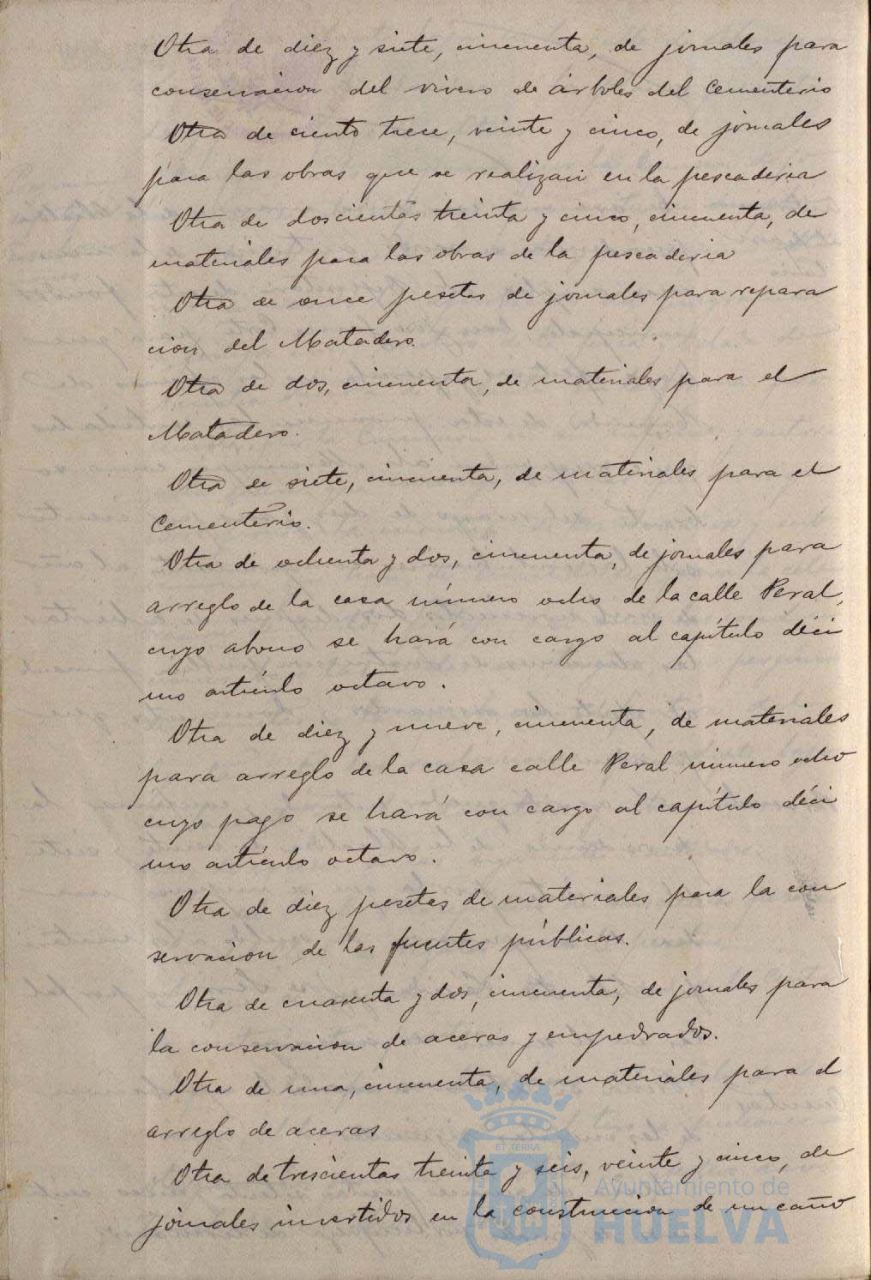 Otra de diez y siete, cincuenta, de jornales para
conservacion del vivero de árboles del Cementerio
Otra de ciento trece, veinte y cinco, de jornales
para las obras que se realizan en la pescaderia
Otra de doscientas treinta y cinco, cincuenta, de
materiales para las obras de la pescaderia
Otra de once pesetas de jornales para repara
cion del Matadero.
Otra de dos, cincuenta, de materiales para el
Matadero.
Otra de siete, cincuenta, de materiales para el
Cementerio.
Otra de ochenta y dos, cincuenta, de jornales para
arreglo de la casa número ocho de la calle Peral,
cuyo abono se hará con cargo al capítulo déci
mo artículo octavo.
Otra de diez y nueve, cincuenta, de materiales
para arreglo de la casa calle Peral número ocho
cuyo pago se hará con cargo al capítulo déci
mo artículo octavo.
Otra de diez pesetas de materiales para la con
servacion de las fuentes públicas.
Otra de cuarenta y dos, cincuenta, de jornales para
la conservacion de aceras y empedrados.
Otra de una, cincuenta, de materiales para el
arreglo de aceras
Otra de trescientas treinta y seis, veinte y cinco, de
jornales invertidos en la construccion de un caño
ET TERRA
Ayuntamiento de
HUELVA